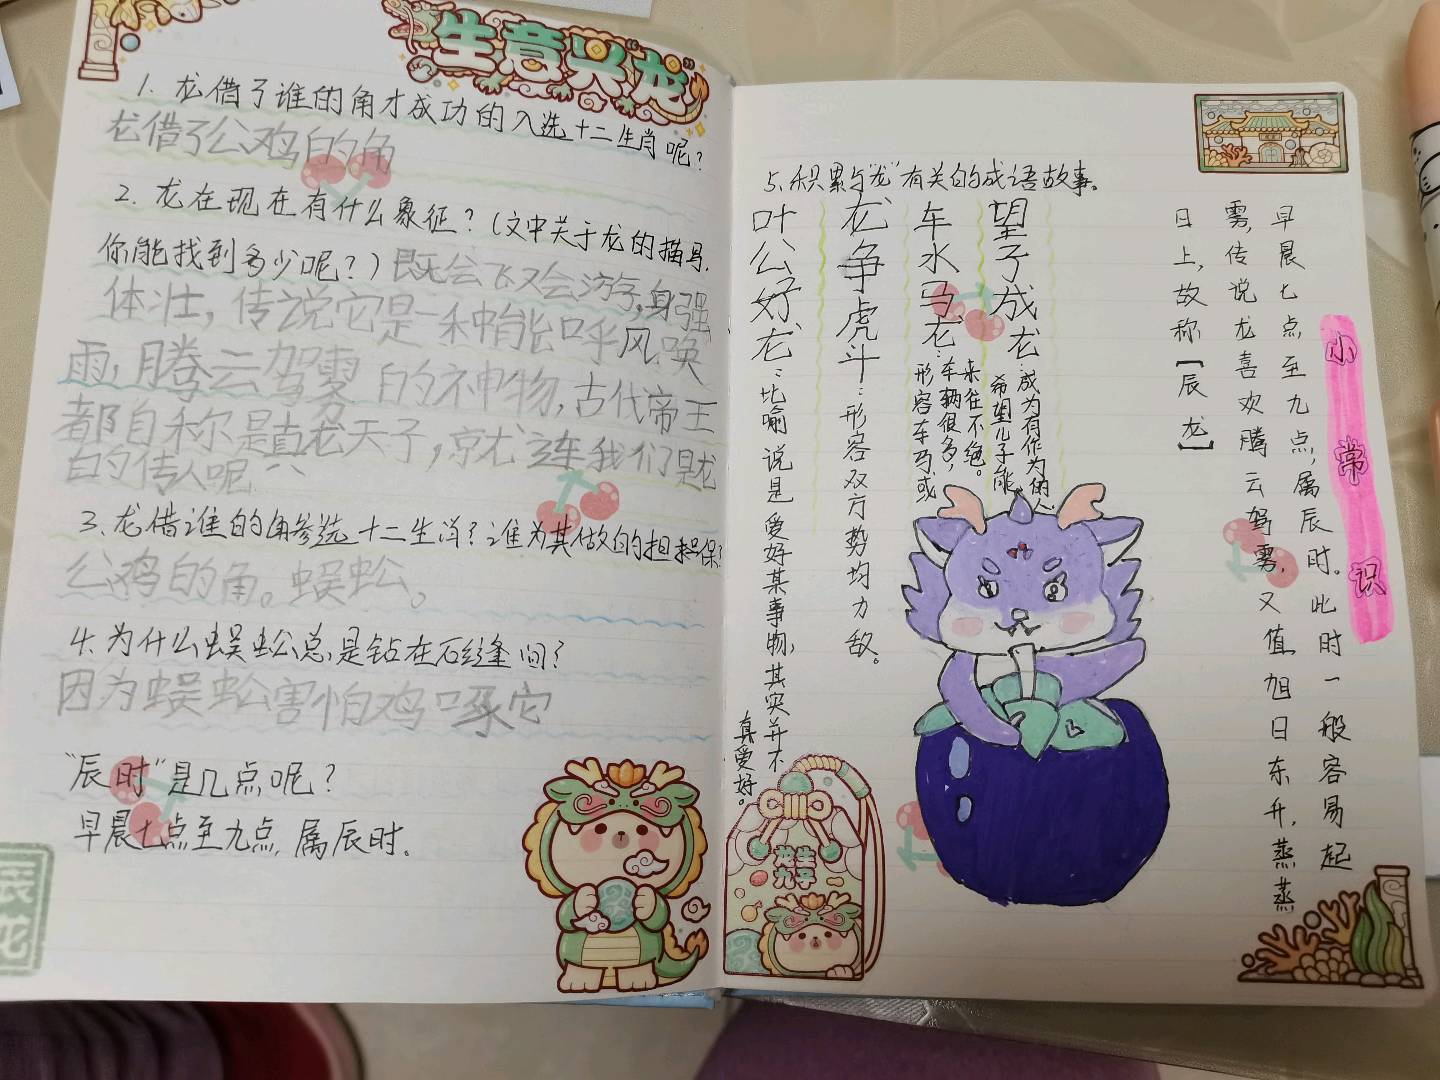 生意兴“龙”
1. 龙借了谁的角才成功的入选十二生肖呢?
龙借了公鸡的角
2. 龙在现在有什么象征?(文中关于龙的描写,
你能找到多少呢?)既会飞又会游,身强
体壮,传说它是一种能呼风唤
雨,腾云驾雾的神物,古代帝王
都自称是真龙天子,就连我们是龙
的传人呢
3. 龙借谁的角参选十二生肖?谁为其做的担保?
公鸡的角。蜈蚣。
4. 为什么蜈蚣总是钻在石缝间?
因为蜈蚣害怕鸡啄它
“辰时”是几点呢?
早晨七点至九点,属辰时。
辰龙
5. 积累与“龙”有关的成语故事。
叶公好龙:比喻说是爱好某事物,其实并不
真爱好。
龙争虎斗:形容双方势均力敌。
车水马龙:形容车马或
车辆很多,
来往不绝。
望子成龙:希望儿子能
成为有作为的人
小常识
早晨七点至九点,属辰时。此时一般容易起
雾,传说龙喜欢腾云驾雾,又值旭日东升,蒸蒸
日上,故称【辰龙】